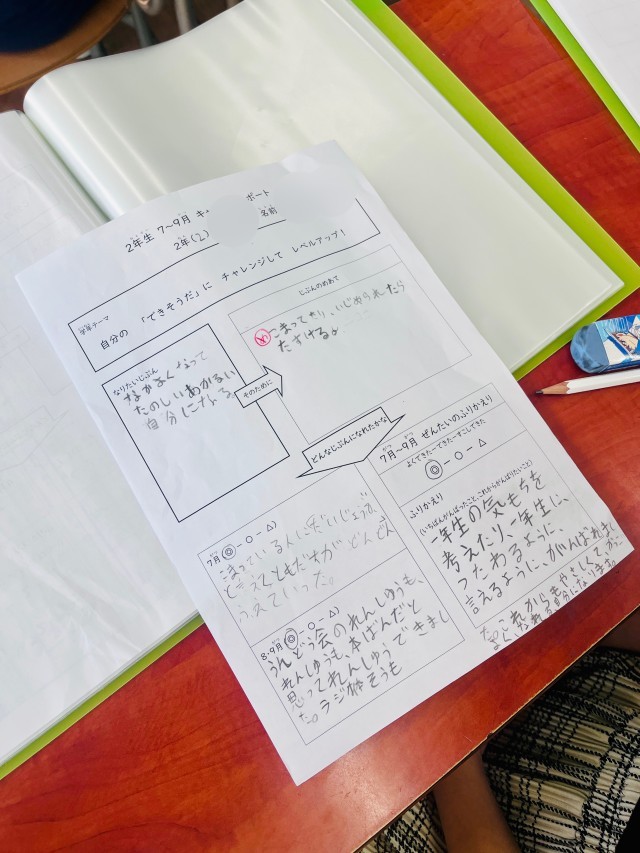 2年生 7～9月 キ ポート
2年(2)
名前
学年テーマ
自分の 「できそうだ」に チャレンジして レベルアップ！
なりたいじぶん
なかよくなって
たのしいあかるい
自分になる
そのために
じぶんのめあて
こまってたり、いじめられたら
たすける。
どんなじぶんになれたかな
7月(◎－○－△)
こまっている人にだいじょうぶ
と言えてともだちが どんどん
ふえていった。
8・9月(◎－○－△)
うんどう会のれんしゅうも、
れんしゅうも、本ばんだと
思ってれんしゅうできまし
た。ラジ体そうも
7月～9月 ぜんたいのふりかえり
よくできた－できた－すこしできた
◎－○－△
ふりかえり
(いちばんがんばったこと、これからがんばりたいこと)
一年生の気もちを
考えたり、一年生に、
つたわるように、
言えるように、がんばれまし
た。これからもやさしくて、かっこ
よい 自分になります。